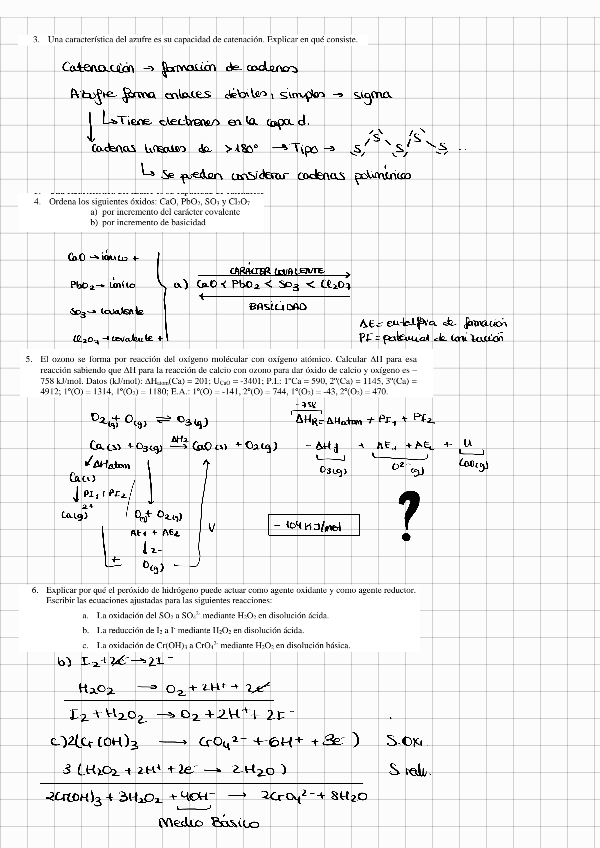 3. Una característica del azufre es su capacidad de catenación. Explicar en qué consiste.
Catenación → formación de cadenas
Azufre forma enlaces débiles, simples → sigma
↳ Tiene electrones en la capa d.
cadenas lineales de >180° → Tipo → S S S S S ..
↳ Se pueden considerar cadenas poliméricas
4. Ordena los siguientes óxidos: CaO, PbO₂, SO₃ y Cl₂O₇
a) por incremento del carácter covalente
b) por incremento de basicidad
CaO → iónico +
PbO₂ → iónico
SO₃ → covalente
Cl₂O₇ → covalente +
a) CARÁCTER COVALENTE
CaO < PbO₂ < SO₃ < Cl₂O₇
BASICIDAD
AE = entalpía de formación
PI = potencial de ionización
5. El ozono se forma por reacción del oxígeno molecular con oxígeno atómico. Calcular ΔH para esa
reacción sabiendo que ΔH para la reacción de calcio con ozono para dar óxido de calcio y oxígeno es –
758 kJ/mol. Datos (kJ/mol): ΔHₐₜₒₘ(Ca) = 201; U_CaO = -3401; P.I.: 1º Ca = 590, 2º(Ca) = 1145, 3º(Ca) =
4912; 1º(O) = 1314, 1º(O₂) = 1180; E.A.: 1º(O) = -141, 2º(O) = 744, 1º(O₂) = -43, 2º(O₂) = 470.
O₂(g) + O(g) ⇌ O₃(g)
Ca(s) + O₃(g) ΔH₂→ CaO(s) + O₂(g)
↙ΔHatom
Ca(s)
↓ PI₁ + PI₂
Ca(g)²⁺
O(g) + O₂(g)
AE₁ + AE₂
↓ 2-
O(g)
+
U
-758
ΔHR = ΔHatom + PI₁ + PI₂
- ΔHf + AE₁ + AE₂ + U
O₃(g) O²⁻(g) CaO(g)
- 104 KJ/mol
?
6. Explicar por qué el peróxido de hidrógeno puede actuar como agente oxidante y como agente reductor.
Escribir las ecuaciones ajustadas para las siguientes reacciones:
a. La oxidación del SO₂ a SO₄²⁻ mediante H₂O₂ en disolución ácida.
b. La reducción de I₂ a I⁻ mediante H₂O₂ en disolución ácida.
c. La oxidación de Cr(OH)₃ a CrO₄²⁻ mediante H₂O₂ en disolución básica.
b) I₂ + 2e⁻ → 2I⁻
H₂O₂ → O₂ + 2H⁺ + 2e⁻
I₂ + H₂O₂ → O₂ + 2H⁺ + 2I⁻
c) 2(Cr(OH)₃ → CrO₄²⁻ + 6H⁺ + 3e⁻) S.Oxi.
3(H₂O₂ + 2H⁺ + 2e⁻ → 2H₂O) S redu.
2Cr(OH)₃ + 3H₂O₂ + 4OH⁻ → 2CrO₄²⁻ + 8H₂O
Medio Básico